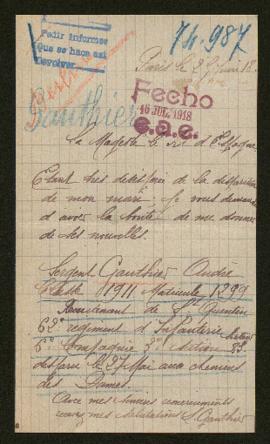 Pedir informes
Que se hace así
Devolver
74.987
Berlin
Paris le 27 Juin 18
Gauthier
Fecho
16 JUL. 1918
C.a.e.
Sa Majesté le roi d'Espagne
Etant très de la disparition
de mon mari, je vous demande
d'avoir la bonté de me donner
de ses nouvelles.
Sergent Gauthier André
Classe 1911 Matricule 1399
Recrutement de St Quentin
62e regiment d'Infanterie
6e Compagnie 3e section
disparu le 27 Mai aux chemins
des Dames.
Avec mes sincères remerciements
recevez mes salutations S. Gauthier